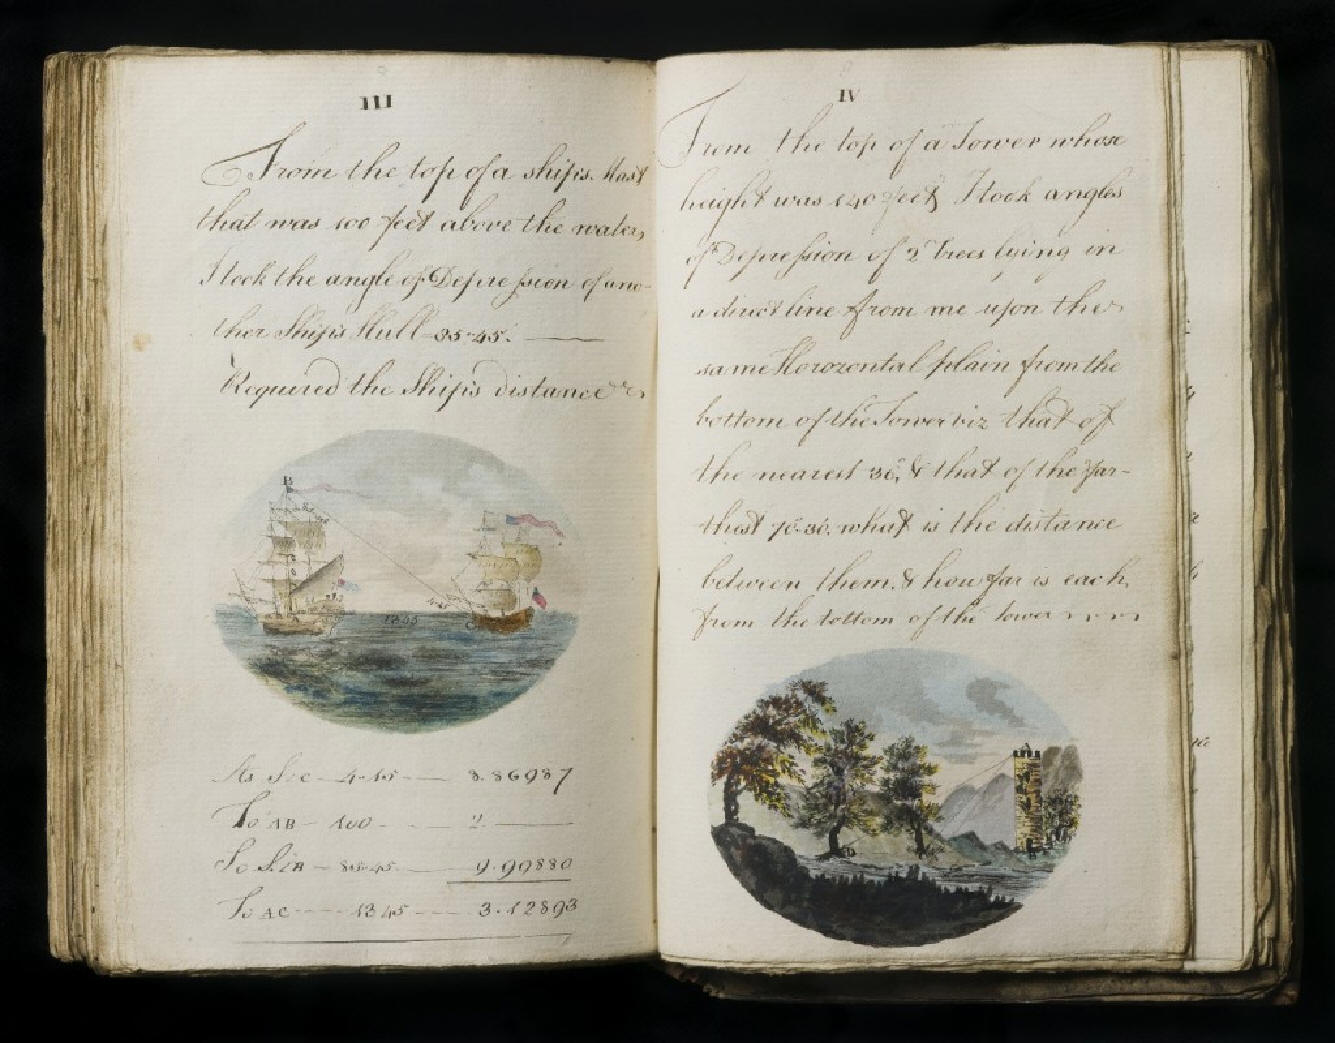 III
From the top of a ships Mast
that was 100 feet above the water,
I took the angle of Depression of ano-
ther Ship's Hull 85-45'.
Required the Ship's distance
B
1345
As S,<C — 4-15 — 8.86987
To AB — 100 — 2.
So S,<B — 85-45 — 9.99880
To AC — 1345 — 3.12893
IV
From the top of a Tower whose
height was 140 feet I took angles
of Depression of 2 Trees lying in
a direct line from me upon the
same Horozontal plain from the
bottom of the Tower viz that of
the nearest 36°, & that of the far-
thest 76-30. what is the distance
between them. & how far is each
from the bottom of the Tower